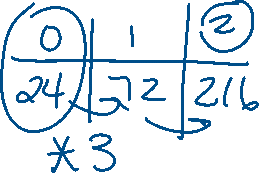 0 1 2
24 72 216
*3